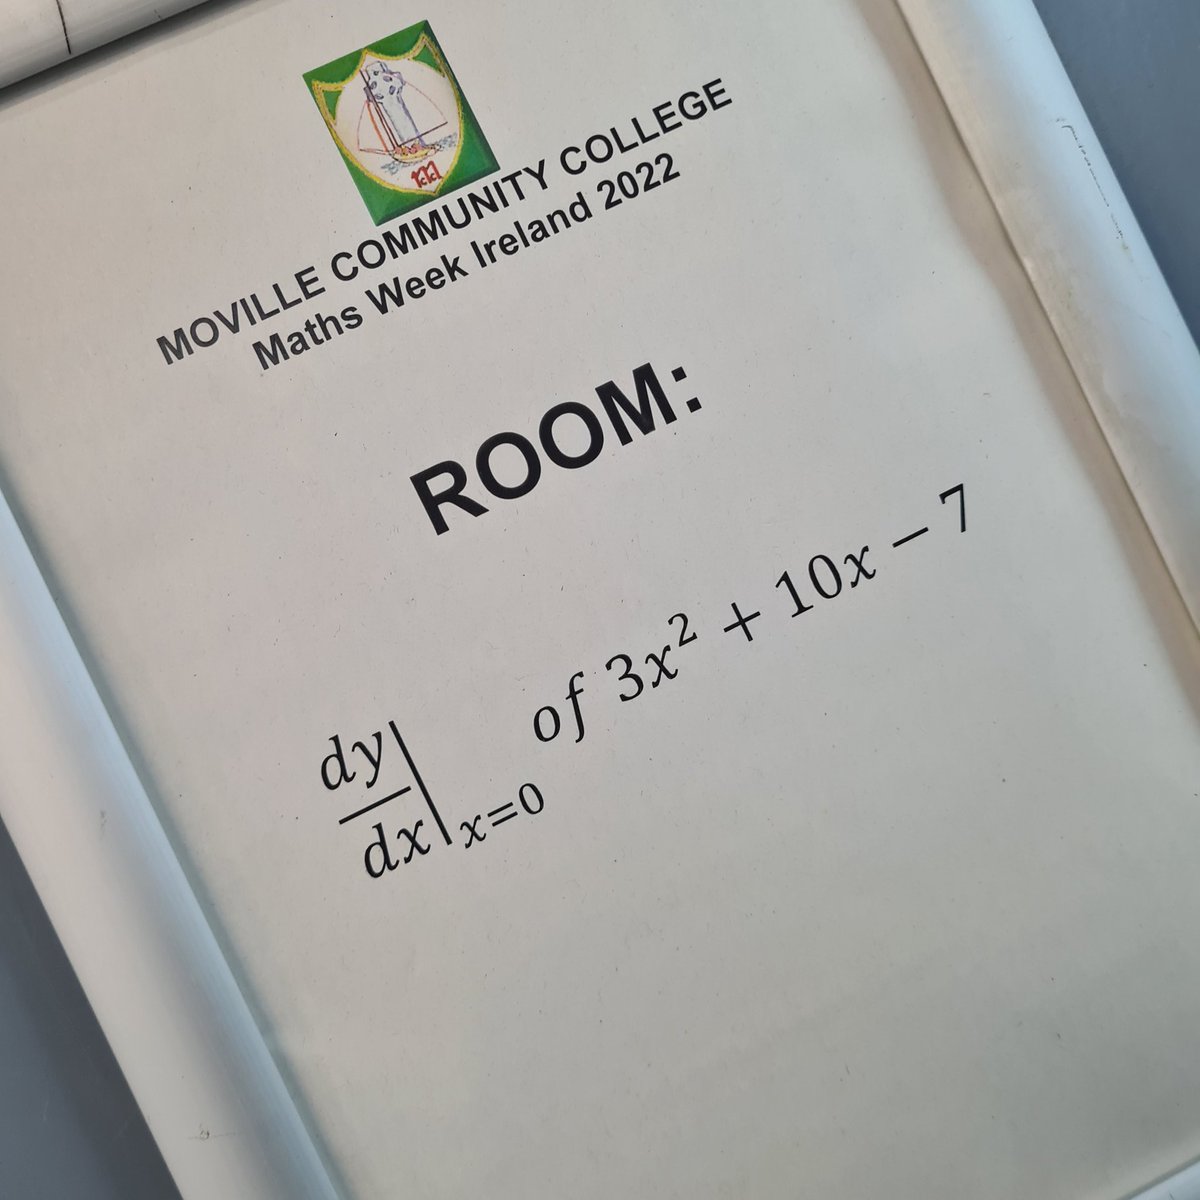 MOVILLE COMMUNITY COLLEGE
Maths Week Ireland 2022
ROOM:
dy/dx|x=0 of 3x² + 10x − 7